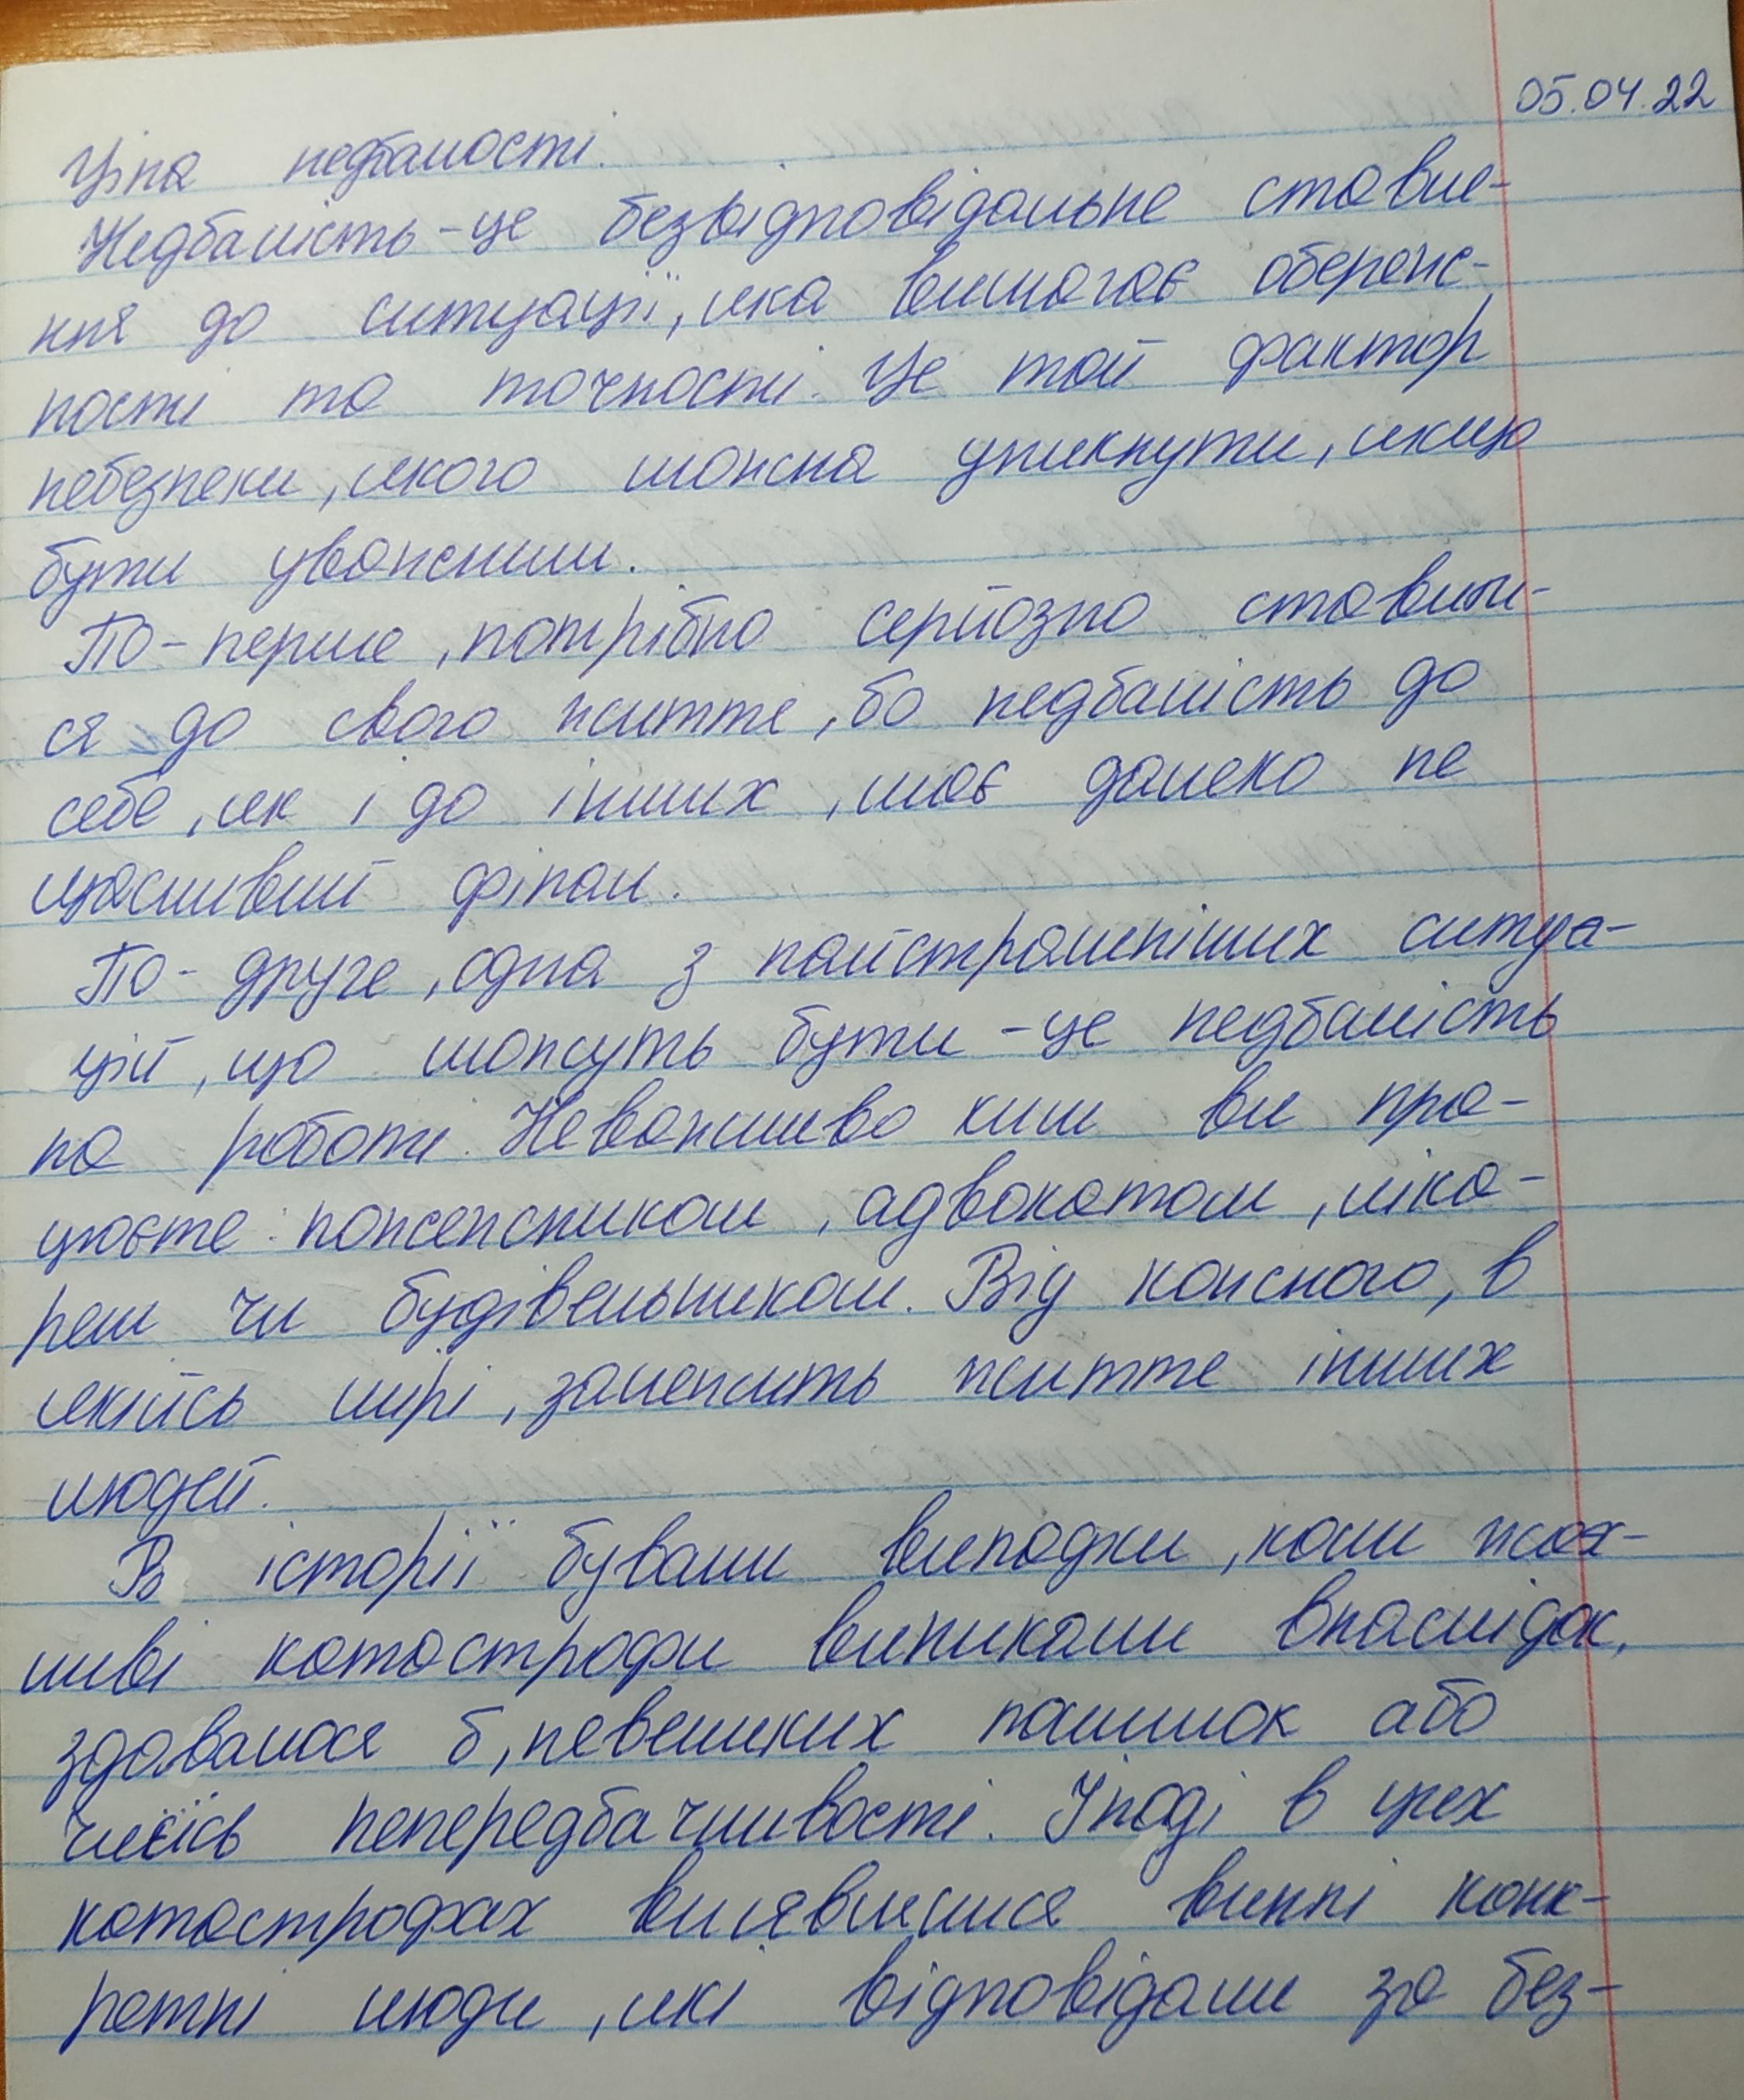 05.04.22
Ціна недбалості.
Недбалість - це безвідповідальне ставле-
ння до ситуації, яка вимагає обереж-
ності та точності. Це той фактор
небезпеки, якого можна уникнути, якщо
бути уважним.
По-перше, потрібно серйозно ставити-
ся до свого життя, бо недбалість до
себе, як і до інших, має далеко не
щасливий фінал.
По-друге, одна з найстрашніших ситуа-
цій, що можуть бути - це недбалість
на роботі. Неважливо ким ви пра-
цюєте: пожежником, адвокатом, ліка-
рем чи будівельником. Від кожного, в
якійсь мірі, залежить життя інших
людей.
В історії бували випадки, коли жах-
ливі катострофи виникали внаслідок,
здавалося б, невеликих помилок або
чиєїсь непередбачливості. Іноді в цих
катострофах виявлялися винні конк-
ретні люди, які відповідали за без-